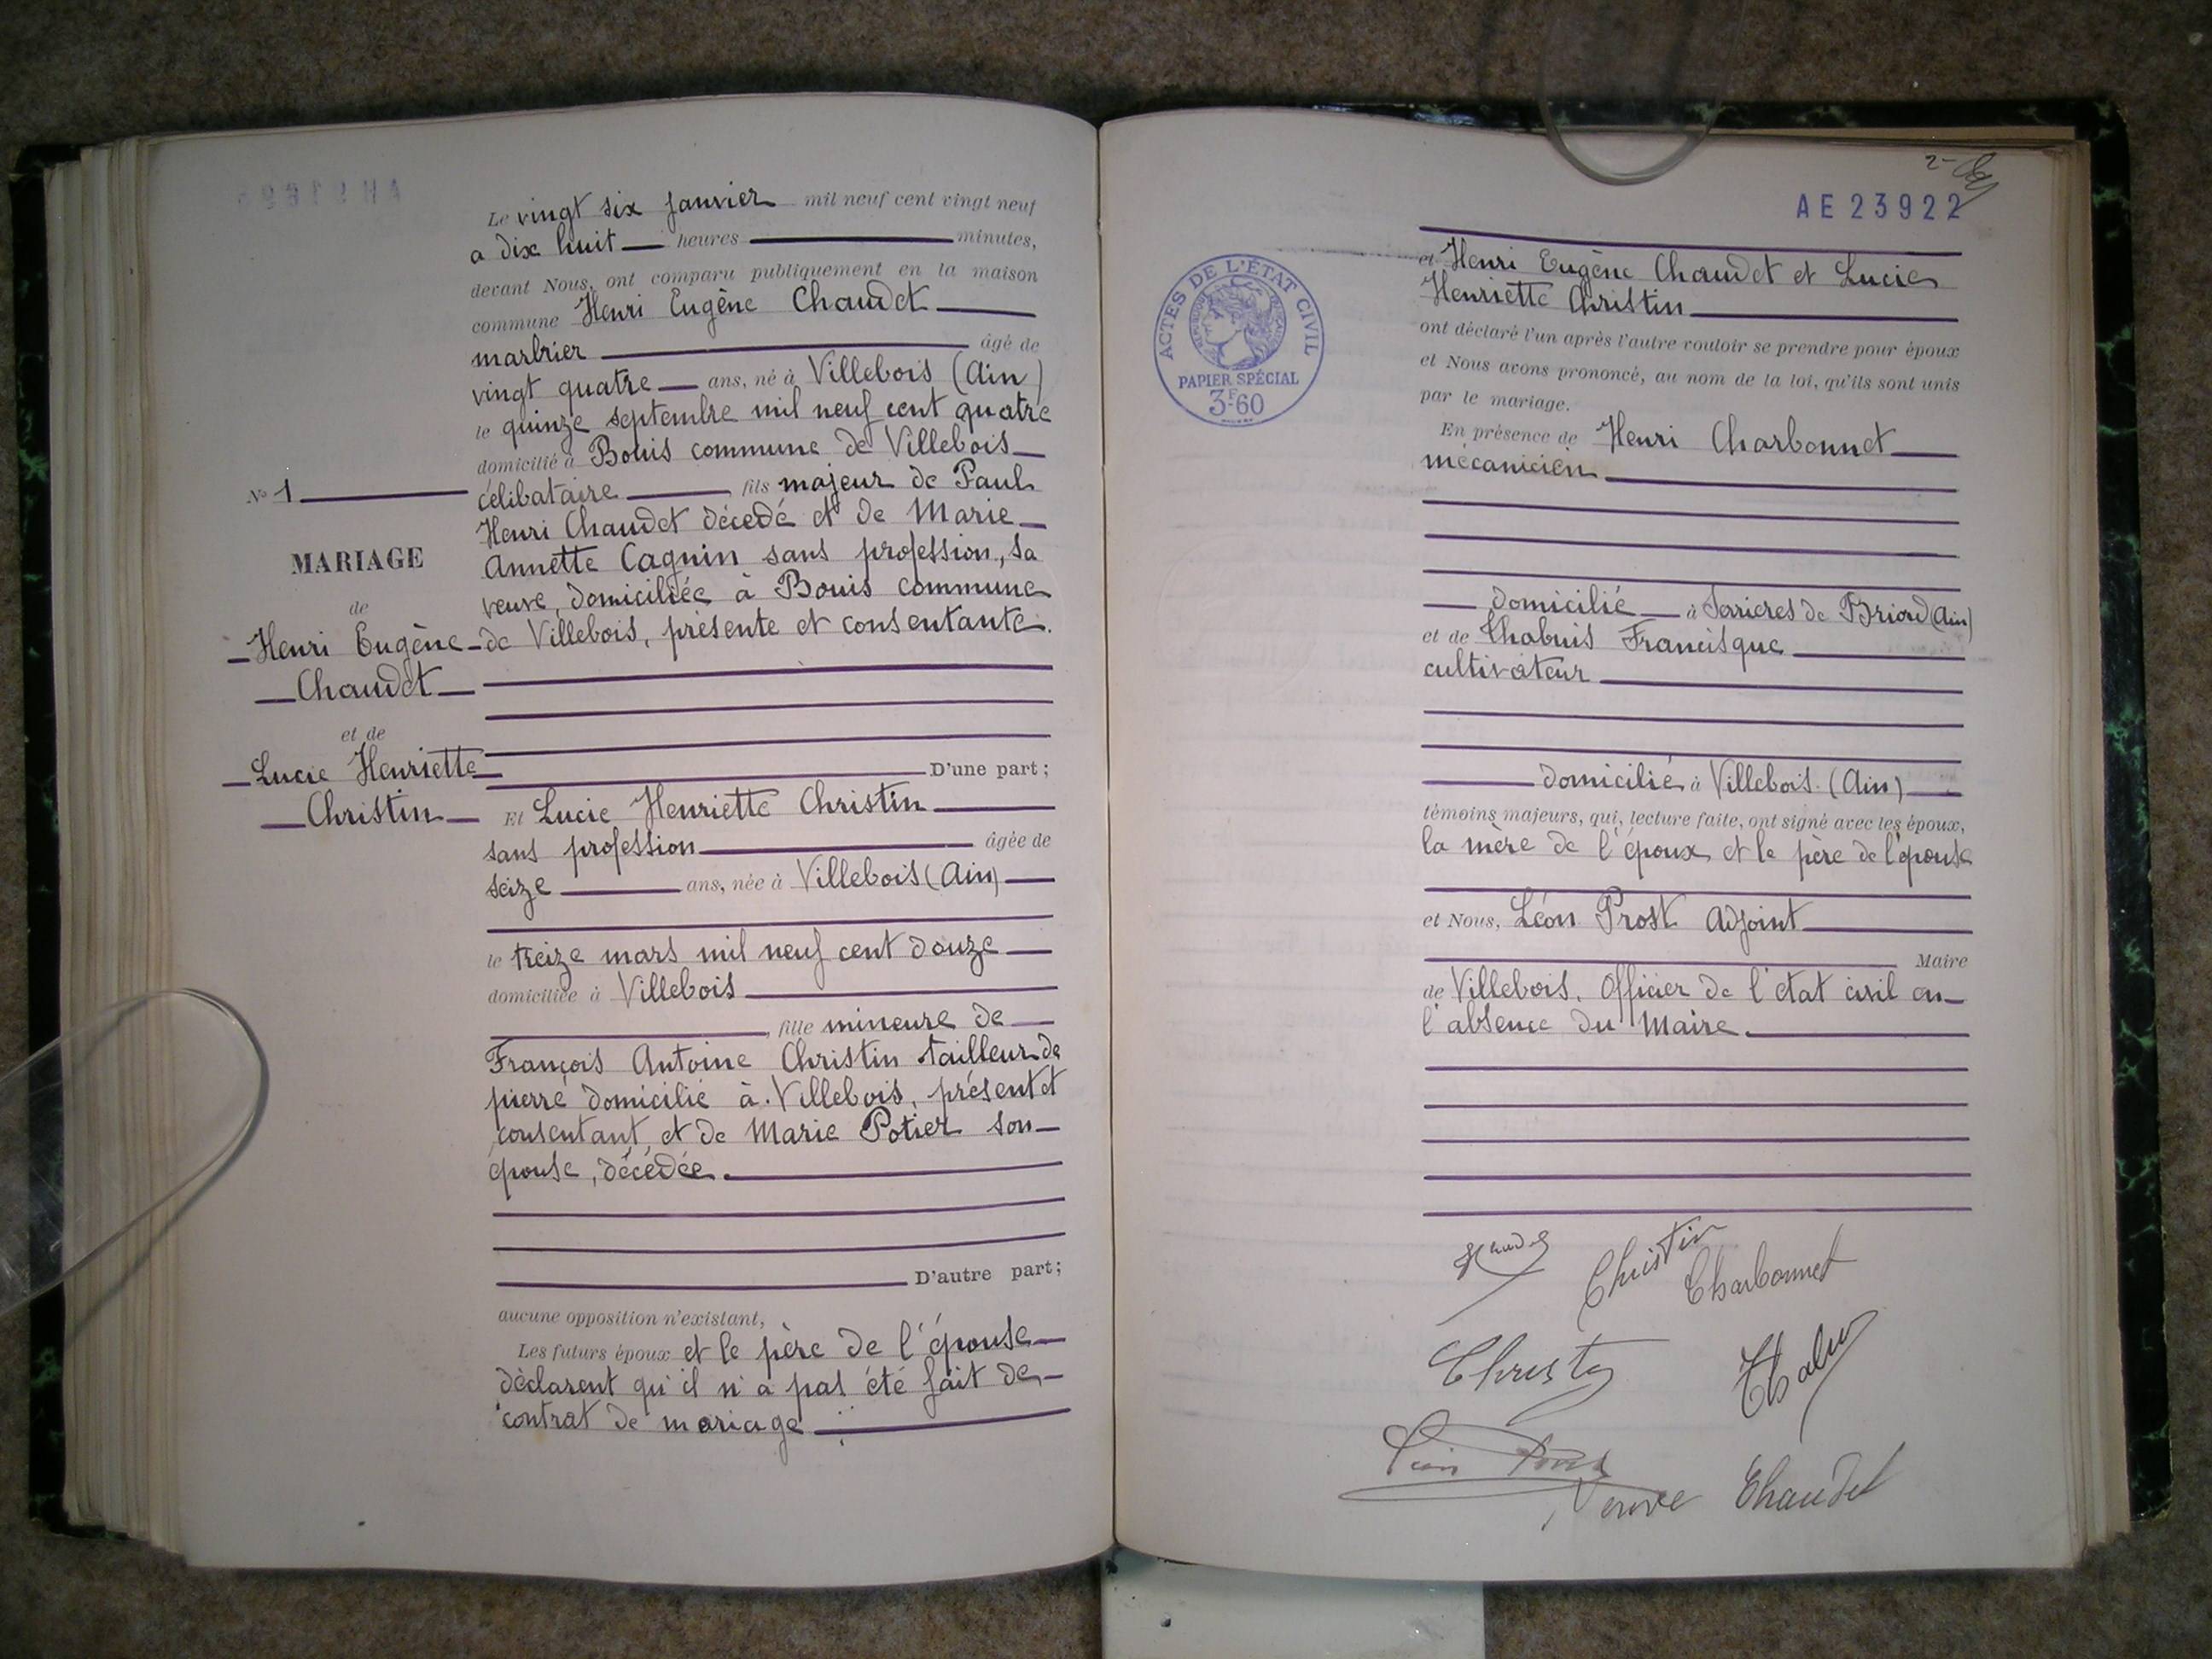 Le vingt six Janvier mil neuf cent vingt neuf
a dix huit heures minutes,
devant Nous, ont comparu publiquement en la maison
commune Henri Eugène Chaudet
marbrier âgé de
vingt quatre ans, né à Villebois (Ain)
le quinze septembre mil neuf cent quatre
domicilié à Bouis commune de Villebois
célibataire, fils majeur de Paul
Henri Chaudet décedé et de Marie
Annette Cagnin sans profession, sa
veuve, domiciliée à Bouis commune
de Villebois, présente et consentante.
D'une part;
Et Lucie Henriette Christin
sans profession âgée de
seize ans, née à Villebois (Ain)
le treize mars mil neuf cent douze
domiciliée à Villebois
, fille mineure de
François Antoine Christin tailleur de
pierre domicilié à Villebois, présent et
consentant, et de Marie Potier son
épouse, décédée.
D'autre part;
aucune opposition n'existant,
Les futurs époux et le père de l'épouse
déclarent qu'il n'a pas été fait de
contrat de mariage
N° 1
MARIAGE
de
Henri Eugène
Chaudet
et de
Lucie Henriette
Christin
2
AE 23922
ACTES DE L'ÉTAT CIVIL
PAPIER SPÉCIAL
3F60
et Henri Eugène Chaudet et Lucie
Henriette Christin
ont déclaré l'un après l'autre vouloir se prendre pour époux
et Nous avons prononcé, au nom de la loi, qu'ils sont unis
par le mariage.
En présence de Henri Charbonnet
mécanicien
domicilié à Serrieres de Briord (Ain)
et de Thabuis Francisque
cultivateur
domicilié à Villebois (Ain)
témoins majeurs, qui, lecture faite, ont signé avec les époux,
la mère de l'époux et le père de l'épouse
et Nous, Léon Prost Adjoint
Maire
de Villebois. Officier de l'état civil en
l'absence du Maire.
Christin
Charbonnet
Léon Prost
Veuve Chaudet